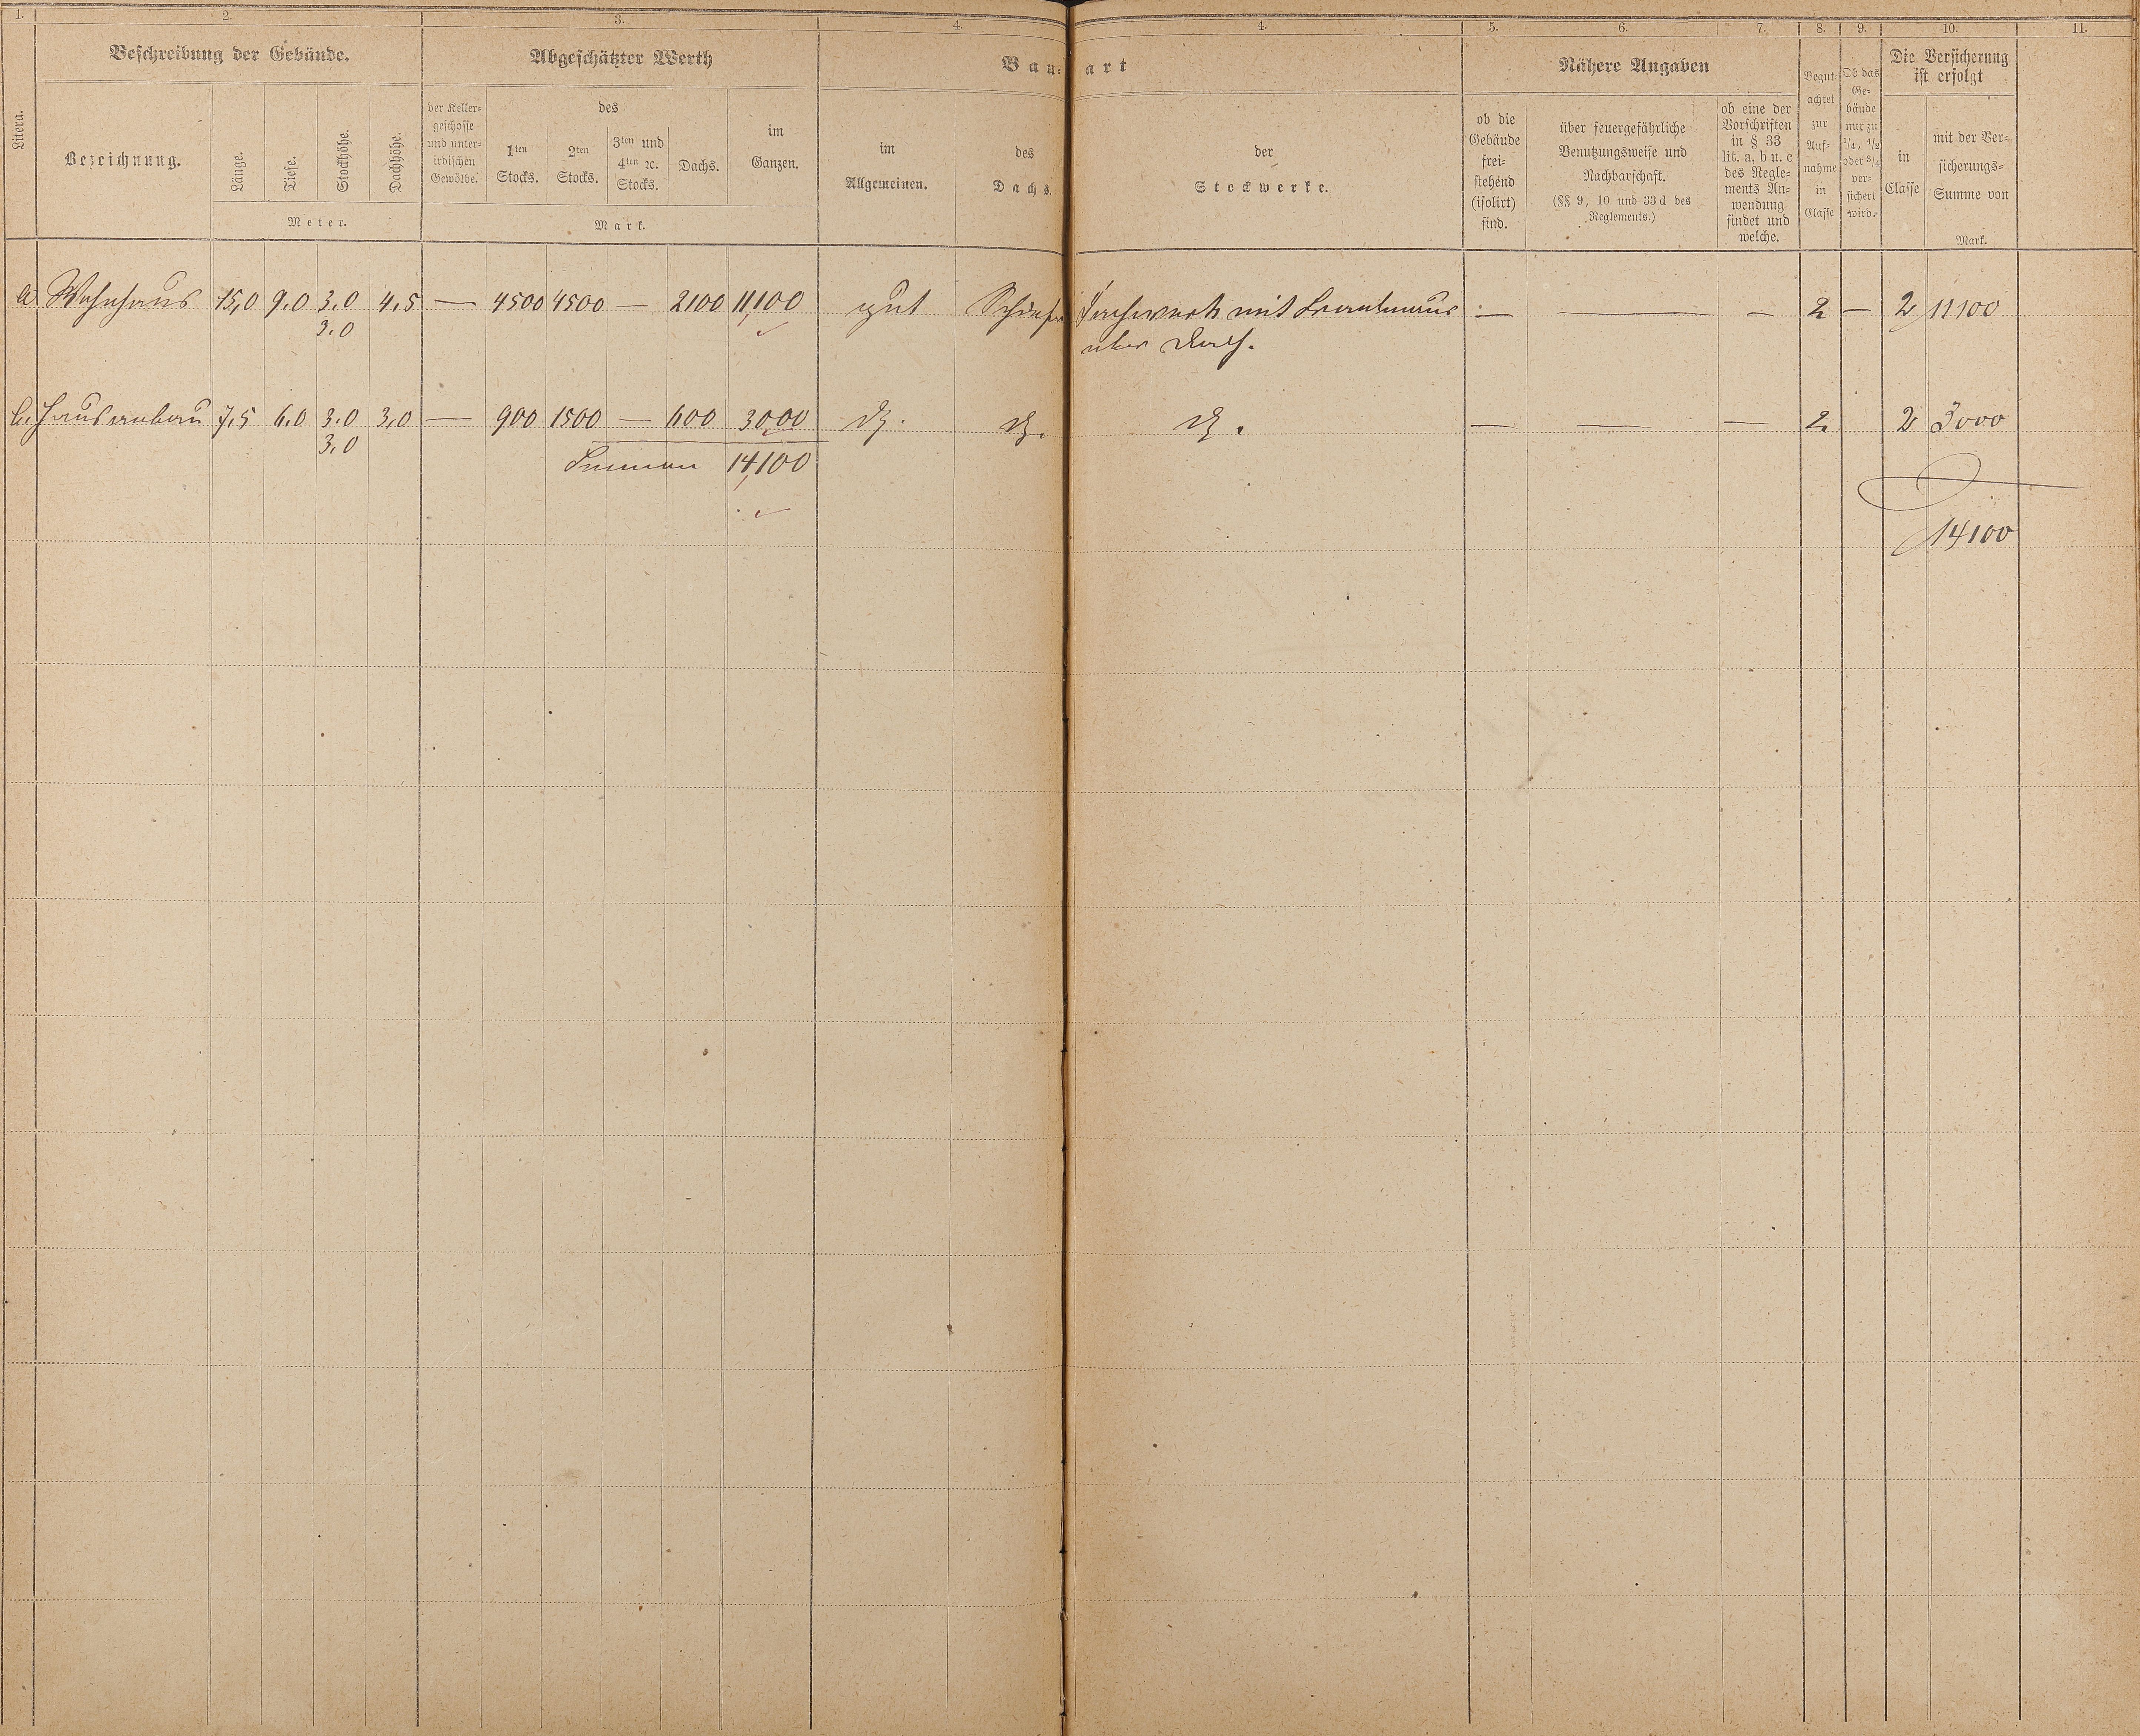 1. 2. 3. 4. 4. 5. 6. 7. 8. 9. 10. 11.
Litera.
Beschreibung der Gebäude.
Bezeichnung.
Länge.
Tiefe.
Stockhöhe.
Dachhöhe.
Meter.
Abgeschätzter Werth
der Keller-
geschosse
und unter-
irdischen
Gewölbe.
des
1ten
Stocks.
2ten
Stocks.
3ten und
4ten ꝛc.
Stocks.
Dachs.
im
Ganzen.
Mark.
Bau- art
im
Allgemeinen.
des
Dachs.
der
Stockwerke.
Nähere Angaben
ob die
Gebäude
frei-
stehend
(isolirt)
sind.
über feuergefährliche
Benutzungsweise und
Nachbarschaft.
(§§ 9, 10 und 33d des
Reglements.)
ob eine der
Vorschriften
in § 33
lit. a, b u. c
des Regle-
ments An-
wendung
findet und
welche.
Begut-
achtet
zur
Auf-
nahme
in
Classe
Ob das
Ge-
bäude
nur zu
1/4, 1/2
oder 3/4
ver-
sichert
wird.
Die Versicherung
ist erfolgt
in
Classe
mit der Ver-
sicherungs-
Summe von
Mark.
a Wohnhaus 15,0 9.0 3.0 4,5 — 4500 4500 — 2100 11,100 gut Schiefer Fachwerk mit :— — — 2 — 2 11100
3.0
über Dach.
b. Hausanbau 7,5 6.0 3.0 3,0 — 900 1500 — 600 3000 do. do. do. — — — 2. 2 3000
3,0
Summa 14,100
14100